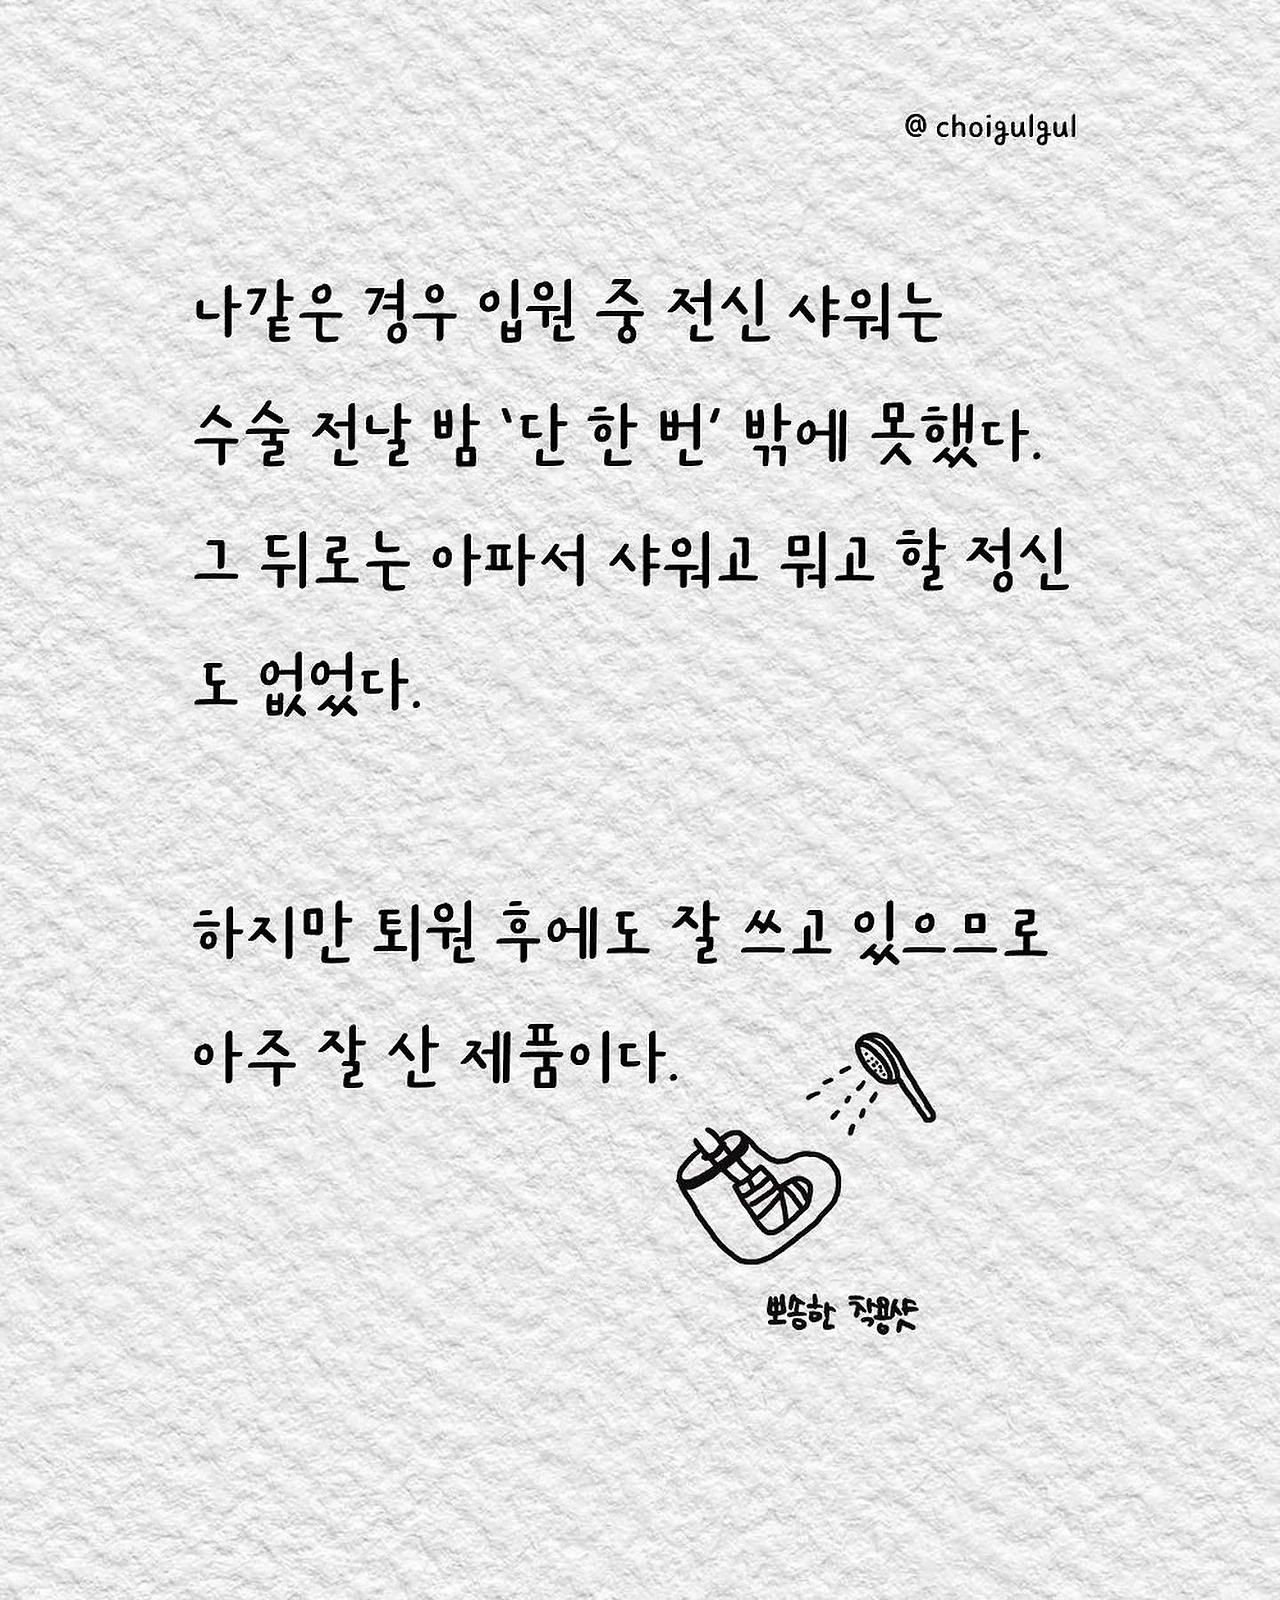 @ choigulgul
나같은 경우 입원 중 전신 샤워는
수술 전날 밤 ‘단 한 번’ 밖에 못했다.
그 뒤로는 아파서 샤워고 뭐고 할 정신
도 없었다.
하지만 퇴원 후에도 잘 쓰고 있으므로
아주 잘 산 제품이다.
뽀송한 착용샷